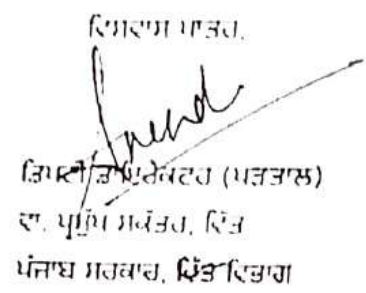 ਵਿਸ਼ਵਾਸ ਪਾਤਰ,
ਡਿਪਟੀ ਡਾਇਰੈਕਟਰ (ਪੜਤਾਲ)
ਵਾ. ਪ੍ਰਮੁੱਖ ਸਕੱਤਰ, ਵਿੱਤ
ਪੰਜਾਬ ਸਰਕਾਰ, ਵਿੱਤ ਵਿਭਾਗ